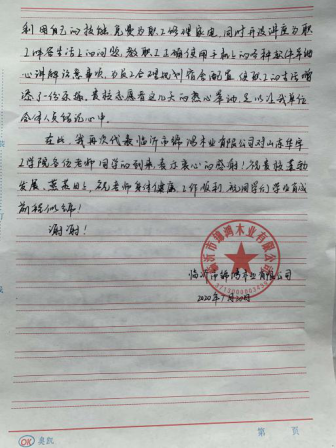 利用自己的技能,免费为职工修理家电,同时开设讲座为职
工 生活上的问题,教职工正确使用手机上的各种软件,细
心讲解注意事项,为员工合理规划宿舍配置,使职工的生活增
添了一份乐趣,贵校志愿者这几天的热心举动,足以让我单位
全体人员铭记心中。
在此,我再次代表临沂市锦鸿木业有限公司对山东华宇
工学院各位老师同学的到来表示衷心的感谢!祝贵校蓬勃
发展,蒸蒸日上,祝老师身体健康,工作顺利,祝同学们学业有成
前程似锦!
谢谢!
临沂市锦鸿木业有限公司
临沂市锦鸿木业有限公司
2020年1月20日
OK 奥凯
第 页